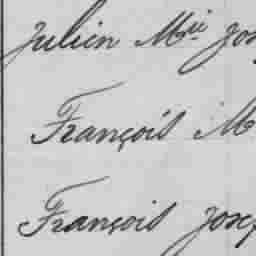 Julien Mie Jos
François M
François Josep